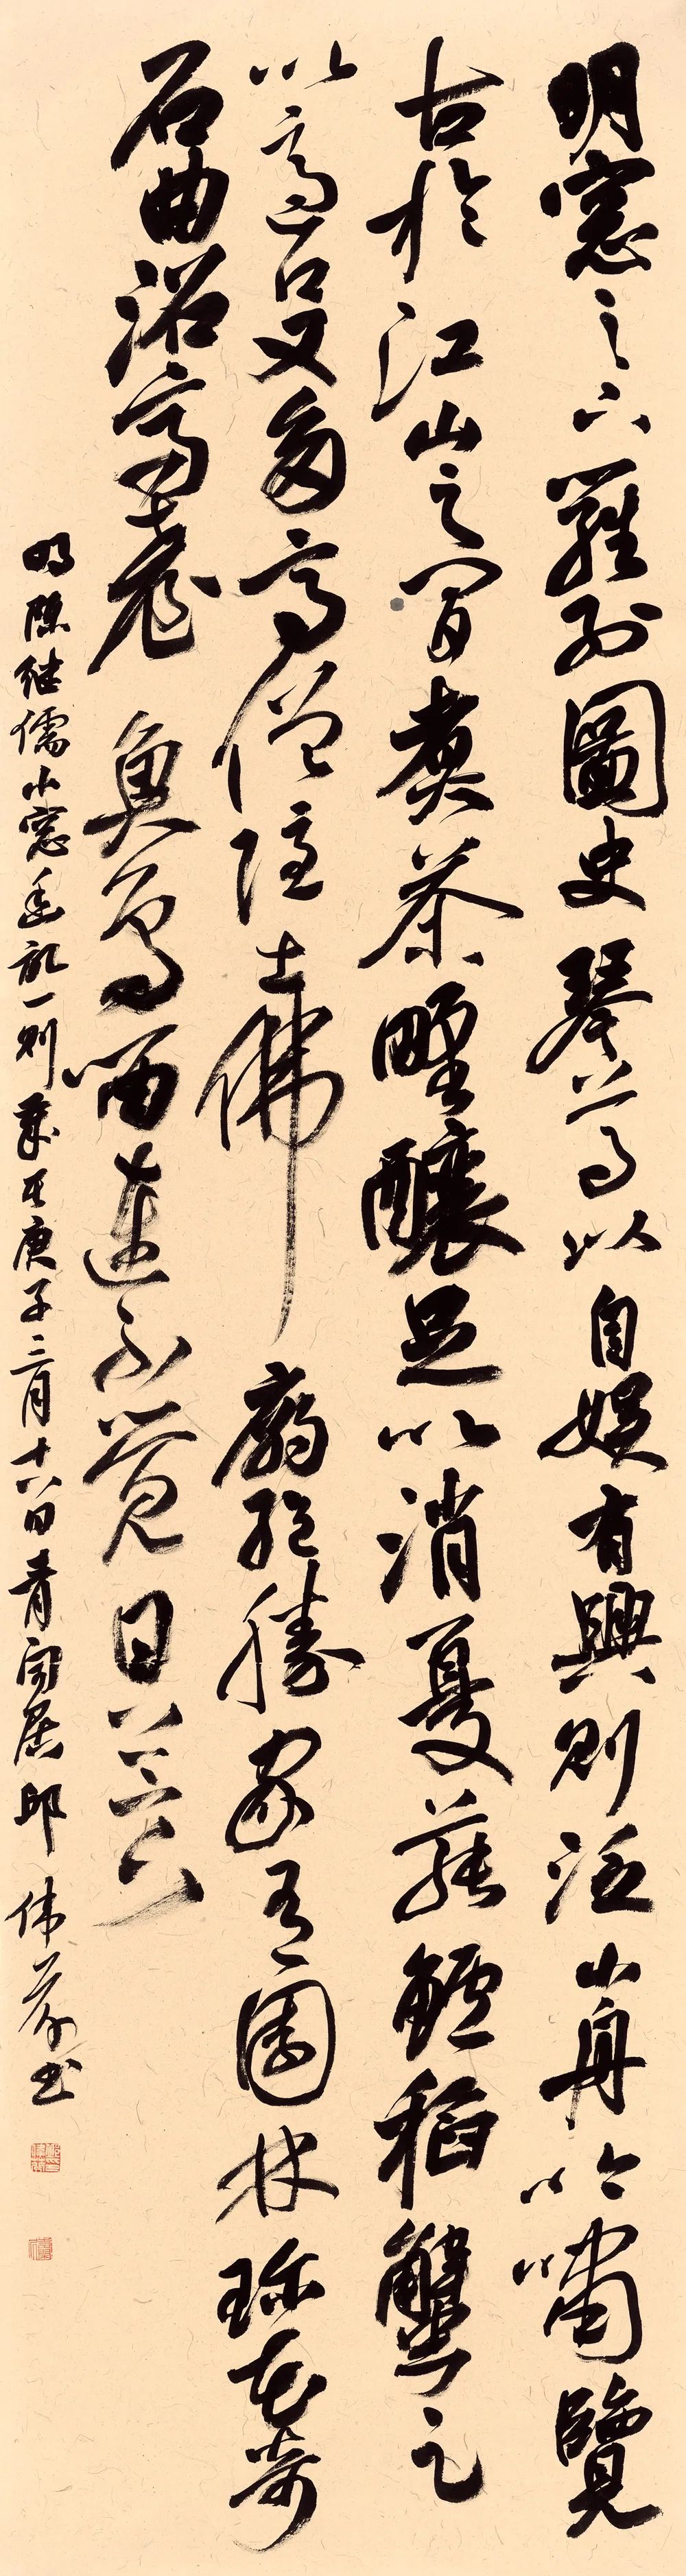 明窗之下羅列圖史琴尊以自娛有興則泛小舟吟嘯覽
古於江山之間煮茶野釀足以消憂蓴鱸稻蟹足
以適口又多高僧隱士佛廟絕勝家有園林珍花奇
石曲沼高臺魚鳥留連不覺日暮
明陈继儒小窗幽記一则歲在庚子三月十八日青闻居邱伟書